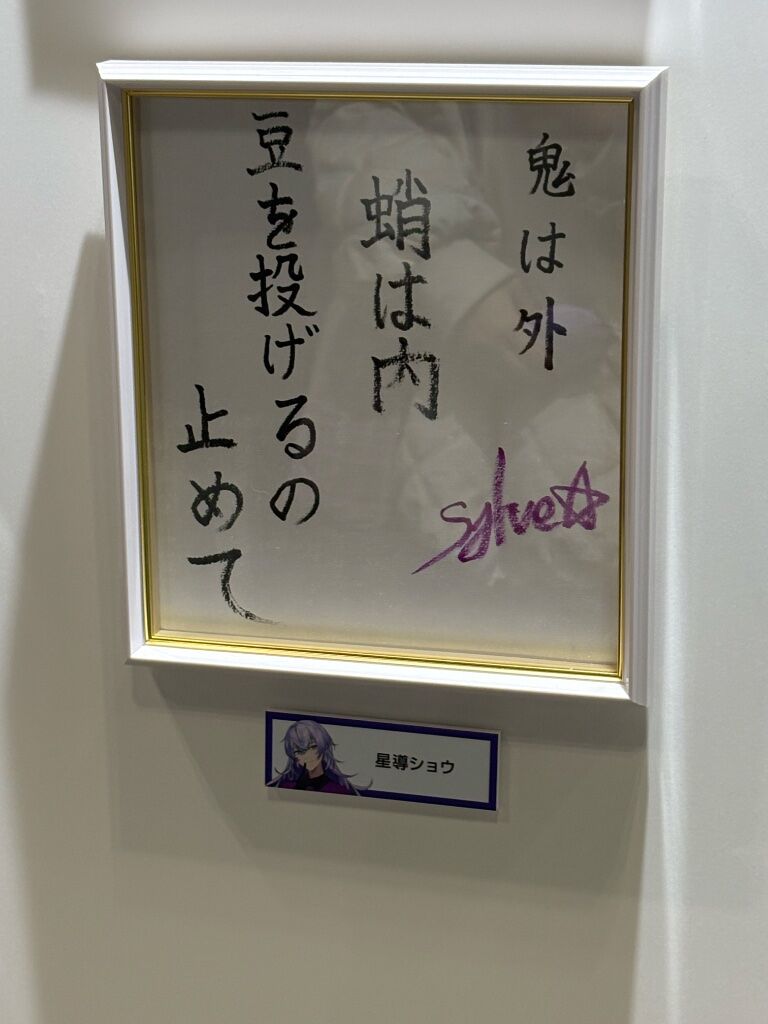 鬼は外
蛸は内
豆を投げるの
止めて
星導ショウ